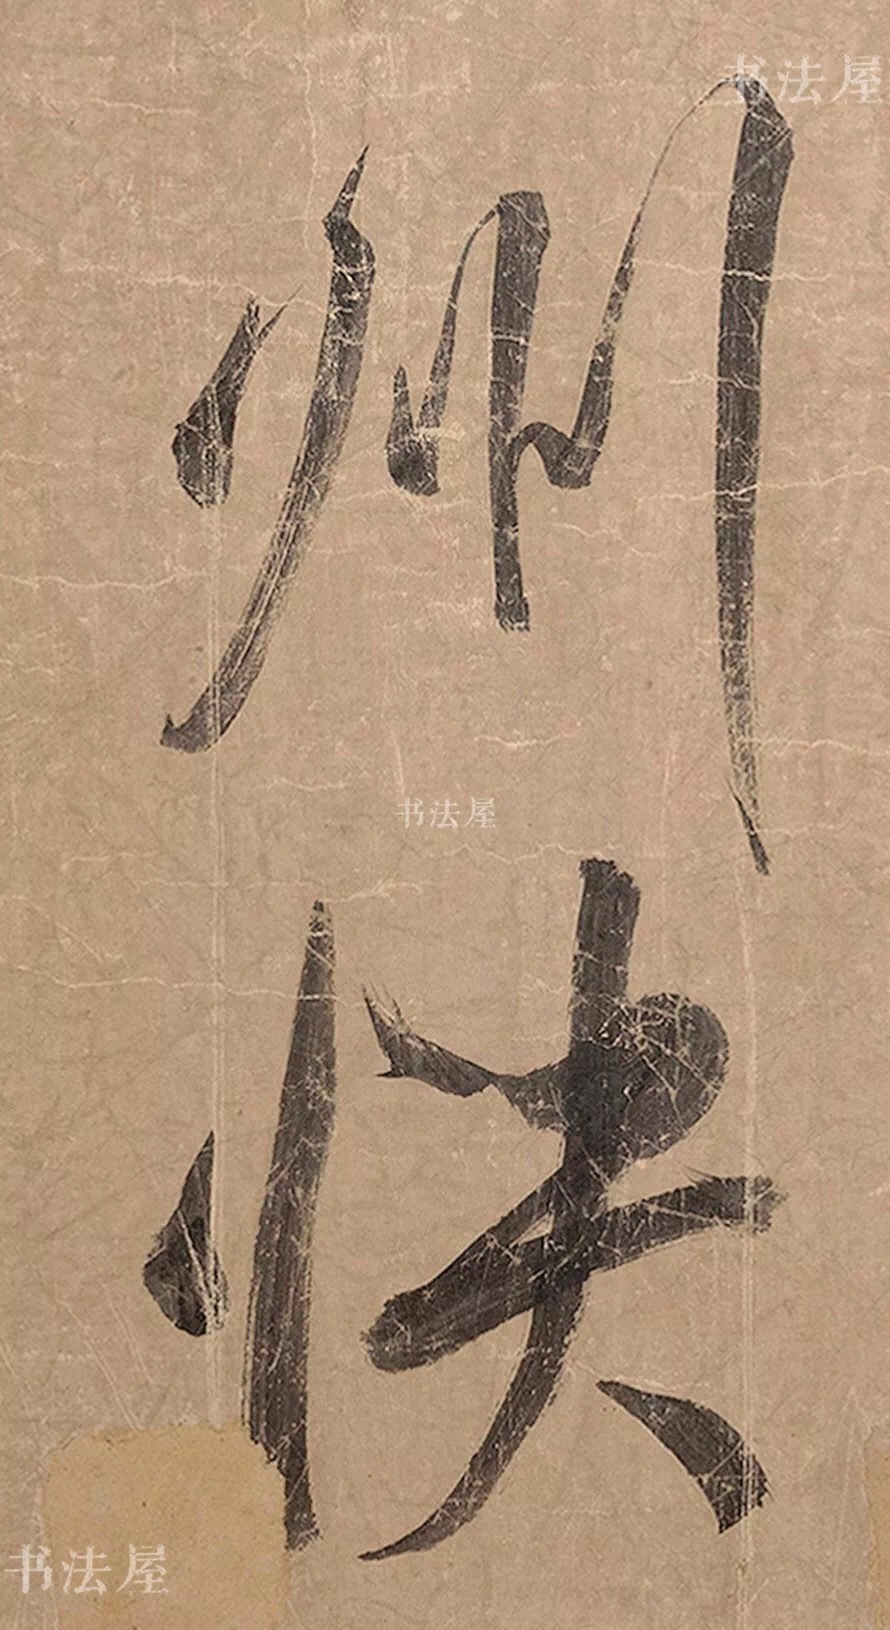 州快
书法屋
书法屋
书法屋